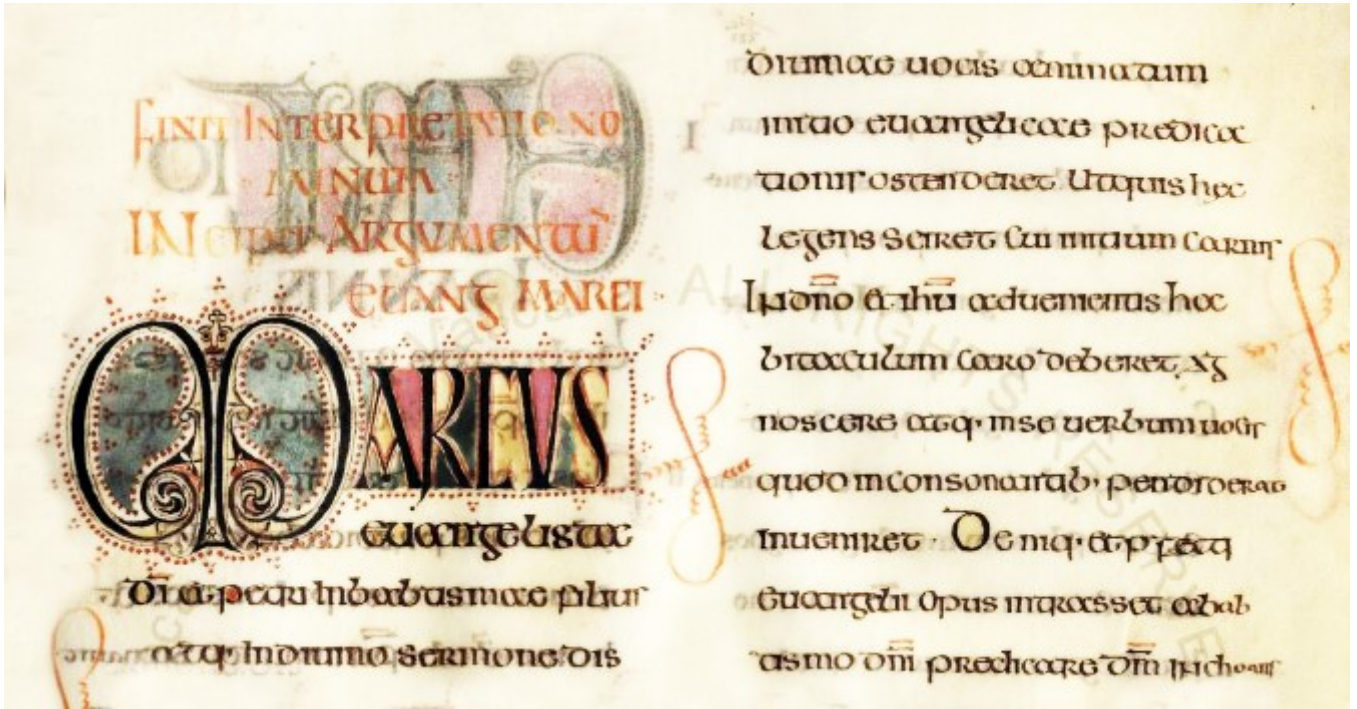 FINIT INTERPRETATIO NO
MINUM
INCIPIT ARGVMENTU
EUANG MARCI
MARCUS
euangelista
di et petri In babtismate filius
atq· In diuino sermone dis
diuinae uocis animatum
initio euangelicae predica
tionis ostenderet Ut quis hec
Legens Sciret Cui initium Carnis
In dno et ihu aduenientis ha
bitaculum Caro deberet Ag
noscere atq· in se uerbum uocis
quod in Consonantib· perdiderat
Inueniret · Deniq· et pfecti
Euangelii Opus intrasset et a bab
tismo dni predicare dm Inchoans